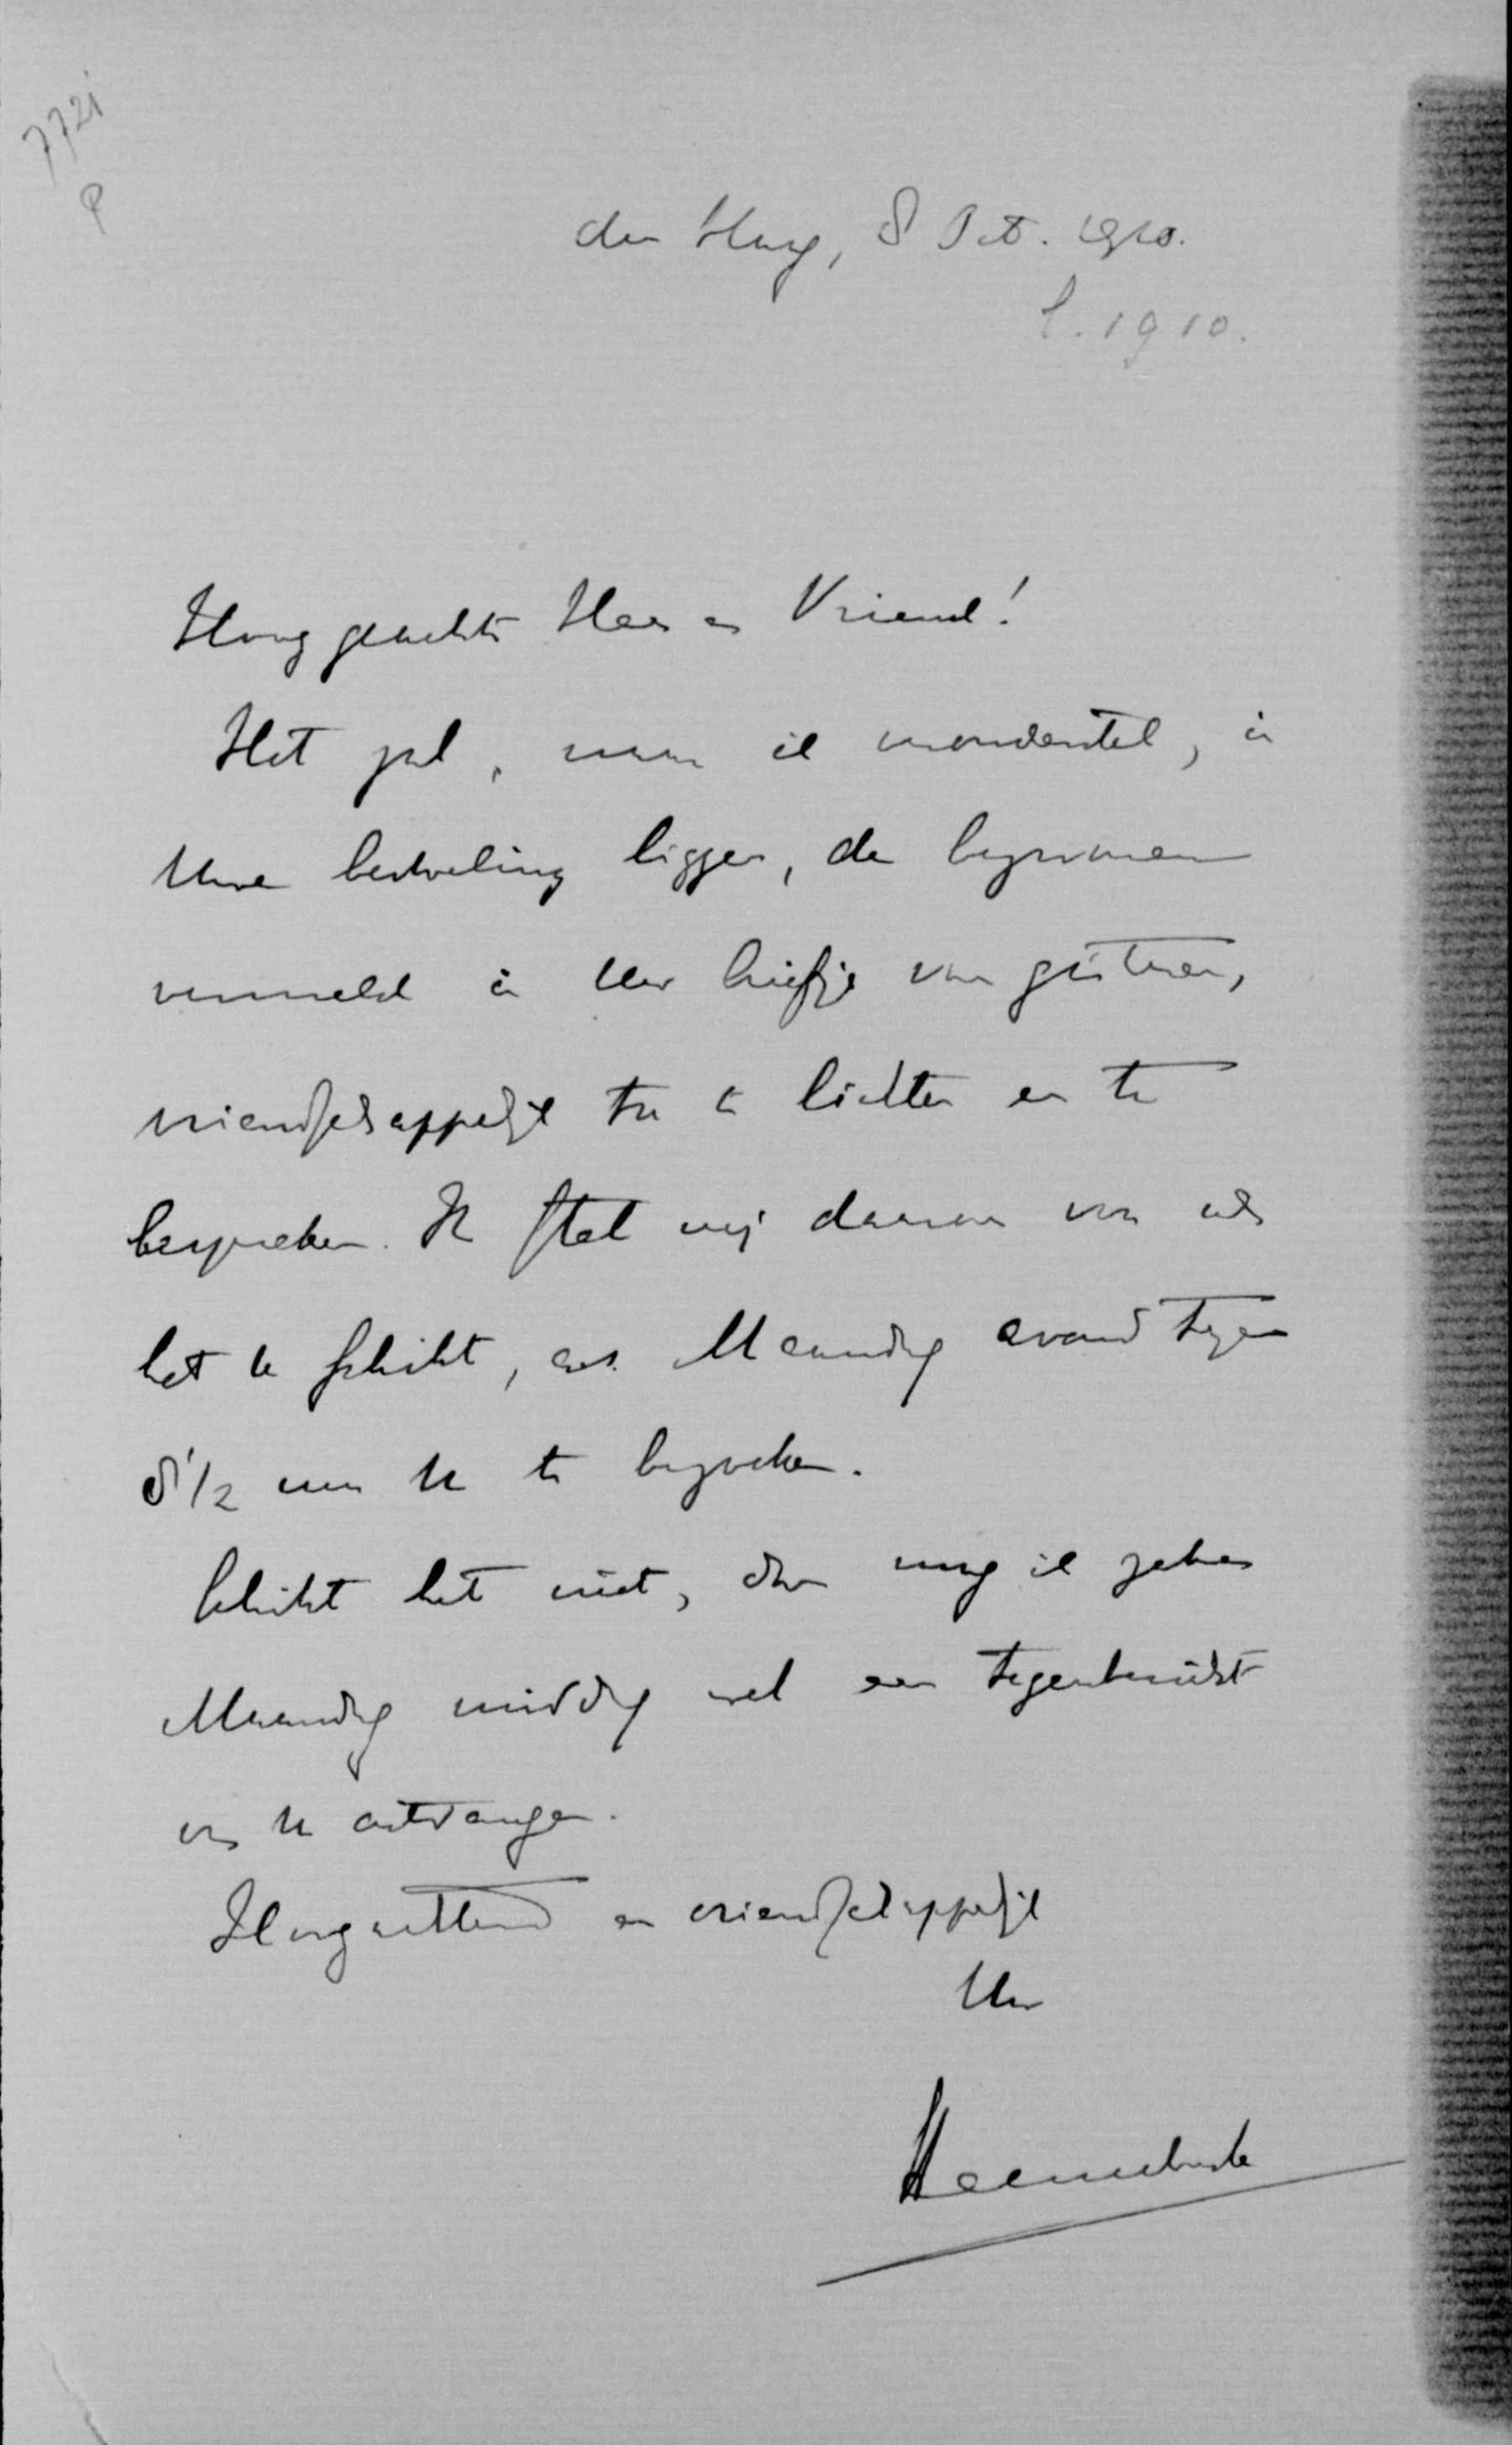 7721
P
den Haag, 8 Oct. 1910.
1910.
Hooggeachte Heer en Vriend!
Het zal, naar ik veronderstel, in
Uwe bedoeling liggen, de bezwaren
vermeld in Uw briefje van gisteren,
vriendschappelijk toe te lichten en te
bespreken. Ik stel mij daarom voor als
het U schikt, a.s. Maandag avond tegen
8 1/2 uur U te bezoeken.
Schikt het niet, dan mag ik zeker
Maandag middag wel een tegenbericht
van U ontvangen.
Hoogachtend en vriendschappelijk
Uw
Heemskerk